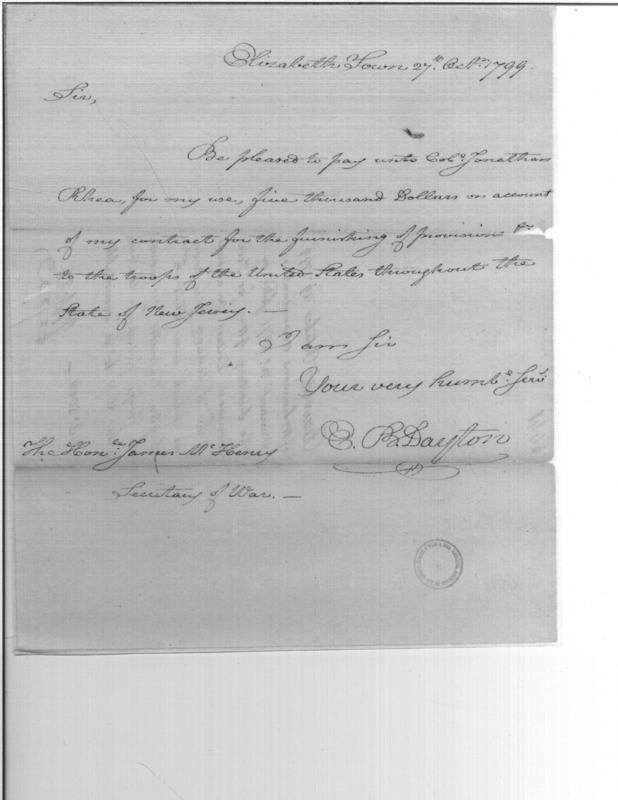 Elizabeth Town 27th. Octr. 1799.
Sir,
Be pleased to pay unto Colo. Jonathan
Rhea, for my use, five thousand Dollars on account
of my contract for the furnishing of provision &c
to the troops of the United States throughout the
State of New Jersey. —
I am Sir
Your very humbe. Servt
E. B. Dayton
The Honble. James McHenry
Secretary of War. —